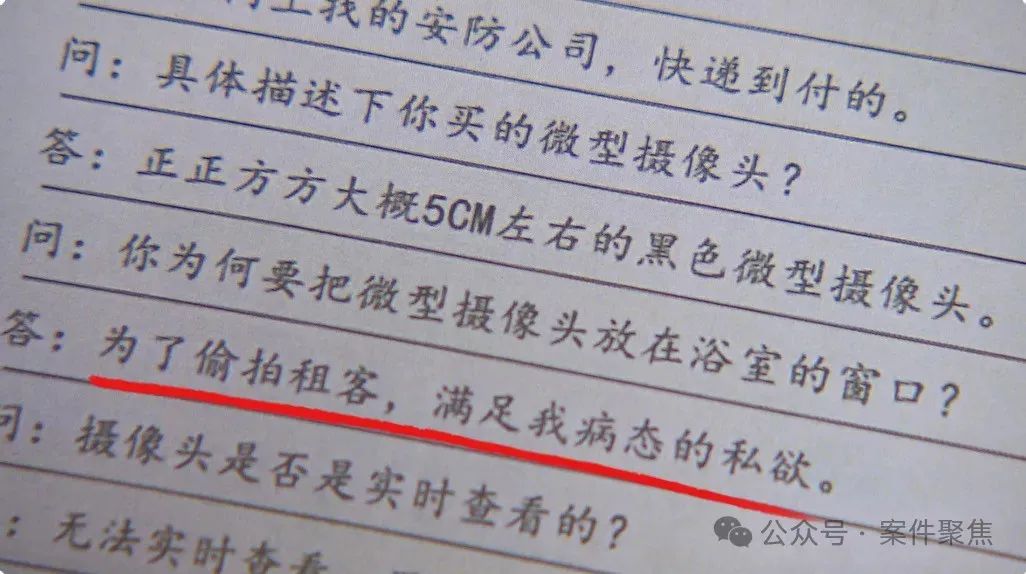 上我的安防公司，快递到付的。
问：具体描述下你买的微型摄像头？
答：正正方方大概5CM左右的黑色微型摄像头。
问：你为何要把微型摄像头放在浴室的窗口？
答：为了偷拍租客，满足我病态的私欲。
问：摄像头是否是实时查看的？
：无法实时查看
公众号·案件聚焦